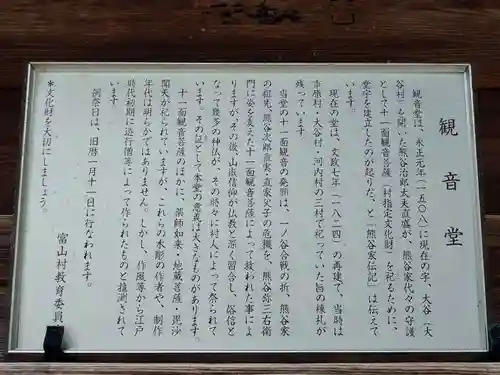 観音堂
観音堂は、永正元年（一五〇八）に現在の字、大谷（大
谷村）を開いた熊谷治郎丈夫直盛が、熊谷家代々の守護
として十一面観音菩薩（村指定文化財）を祀るために、
堂宇を建立したのが起りだ、と「熊谷家伝記」は伝えて
います。
現在の堂は、文政七年（一八二四）の再建で、当時は
市原村・大谷村・河内村の三村で祀っていた旨の棟札が
残っています
当堂の十一面観音の発願は、一ノ谷合戦の折、熊谷家
の祖先、熊谷治郎直実・直家父子の危機を、熊谷弥三右衛
門に姿を変えた十一面観音菩薩によって救われた事によ
りますが、その後、山岳信仰が仏教と深く習合し、俗信と
なって幾多の神仏が、その時々に村人によって祭られて
います。その証として本堂の意義は大きなものがあります。
十一面観音菩薩のほかに、薬師如来・地蔵菩薩・毘沙
門天が祀られていますが、これらの木彫の作者や、制作
年代は明らかではありません。しかし、作風等から江戸
時代初期に遊行僧等によって作られたものと推測されて
います
例祭日は、旧暦一月十一日に行なわれます。
＊文化財を大切にしましょう。
富山村教育委員